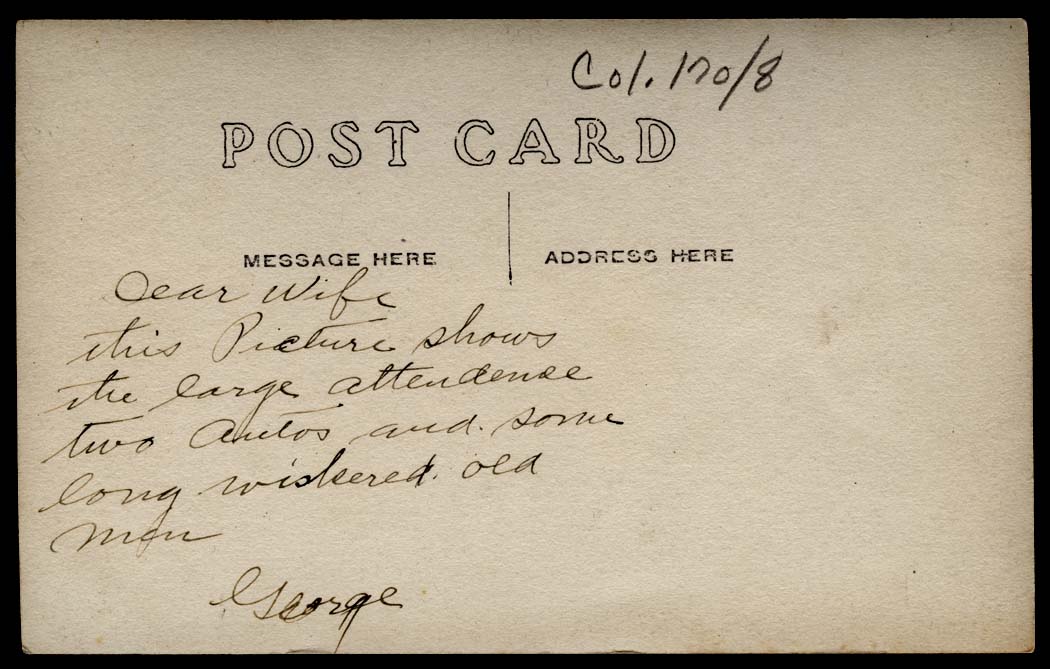 Col. 170/8
POST CARD
MESSAGE HERE
ADDRESS HERE
Dear Wife
this Picture shows
the large attendense
two Autos and some
long wiskered old
men
George